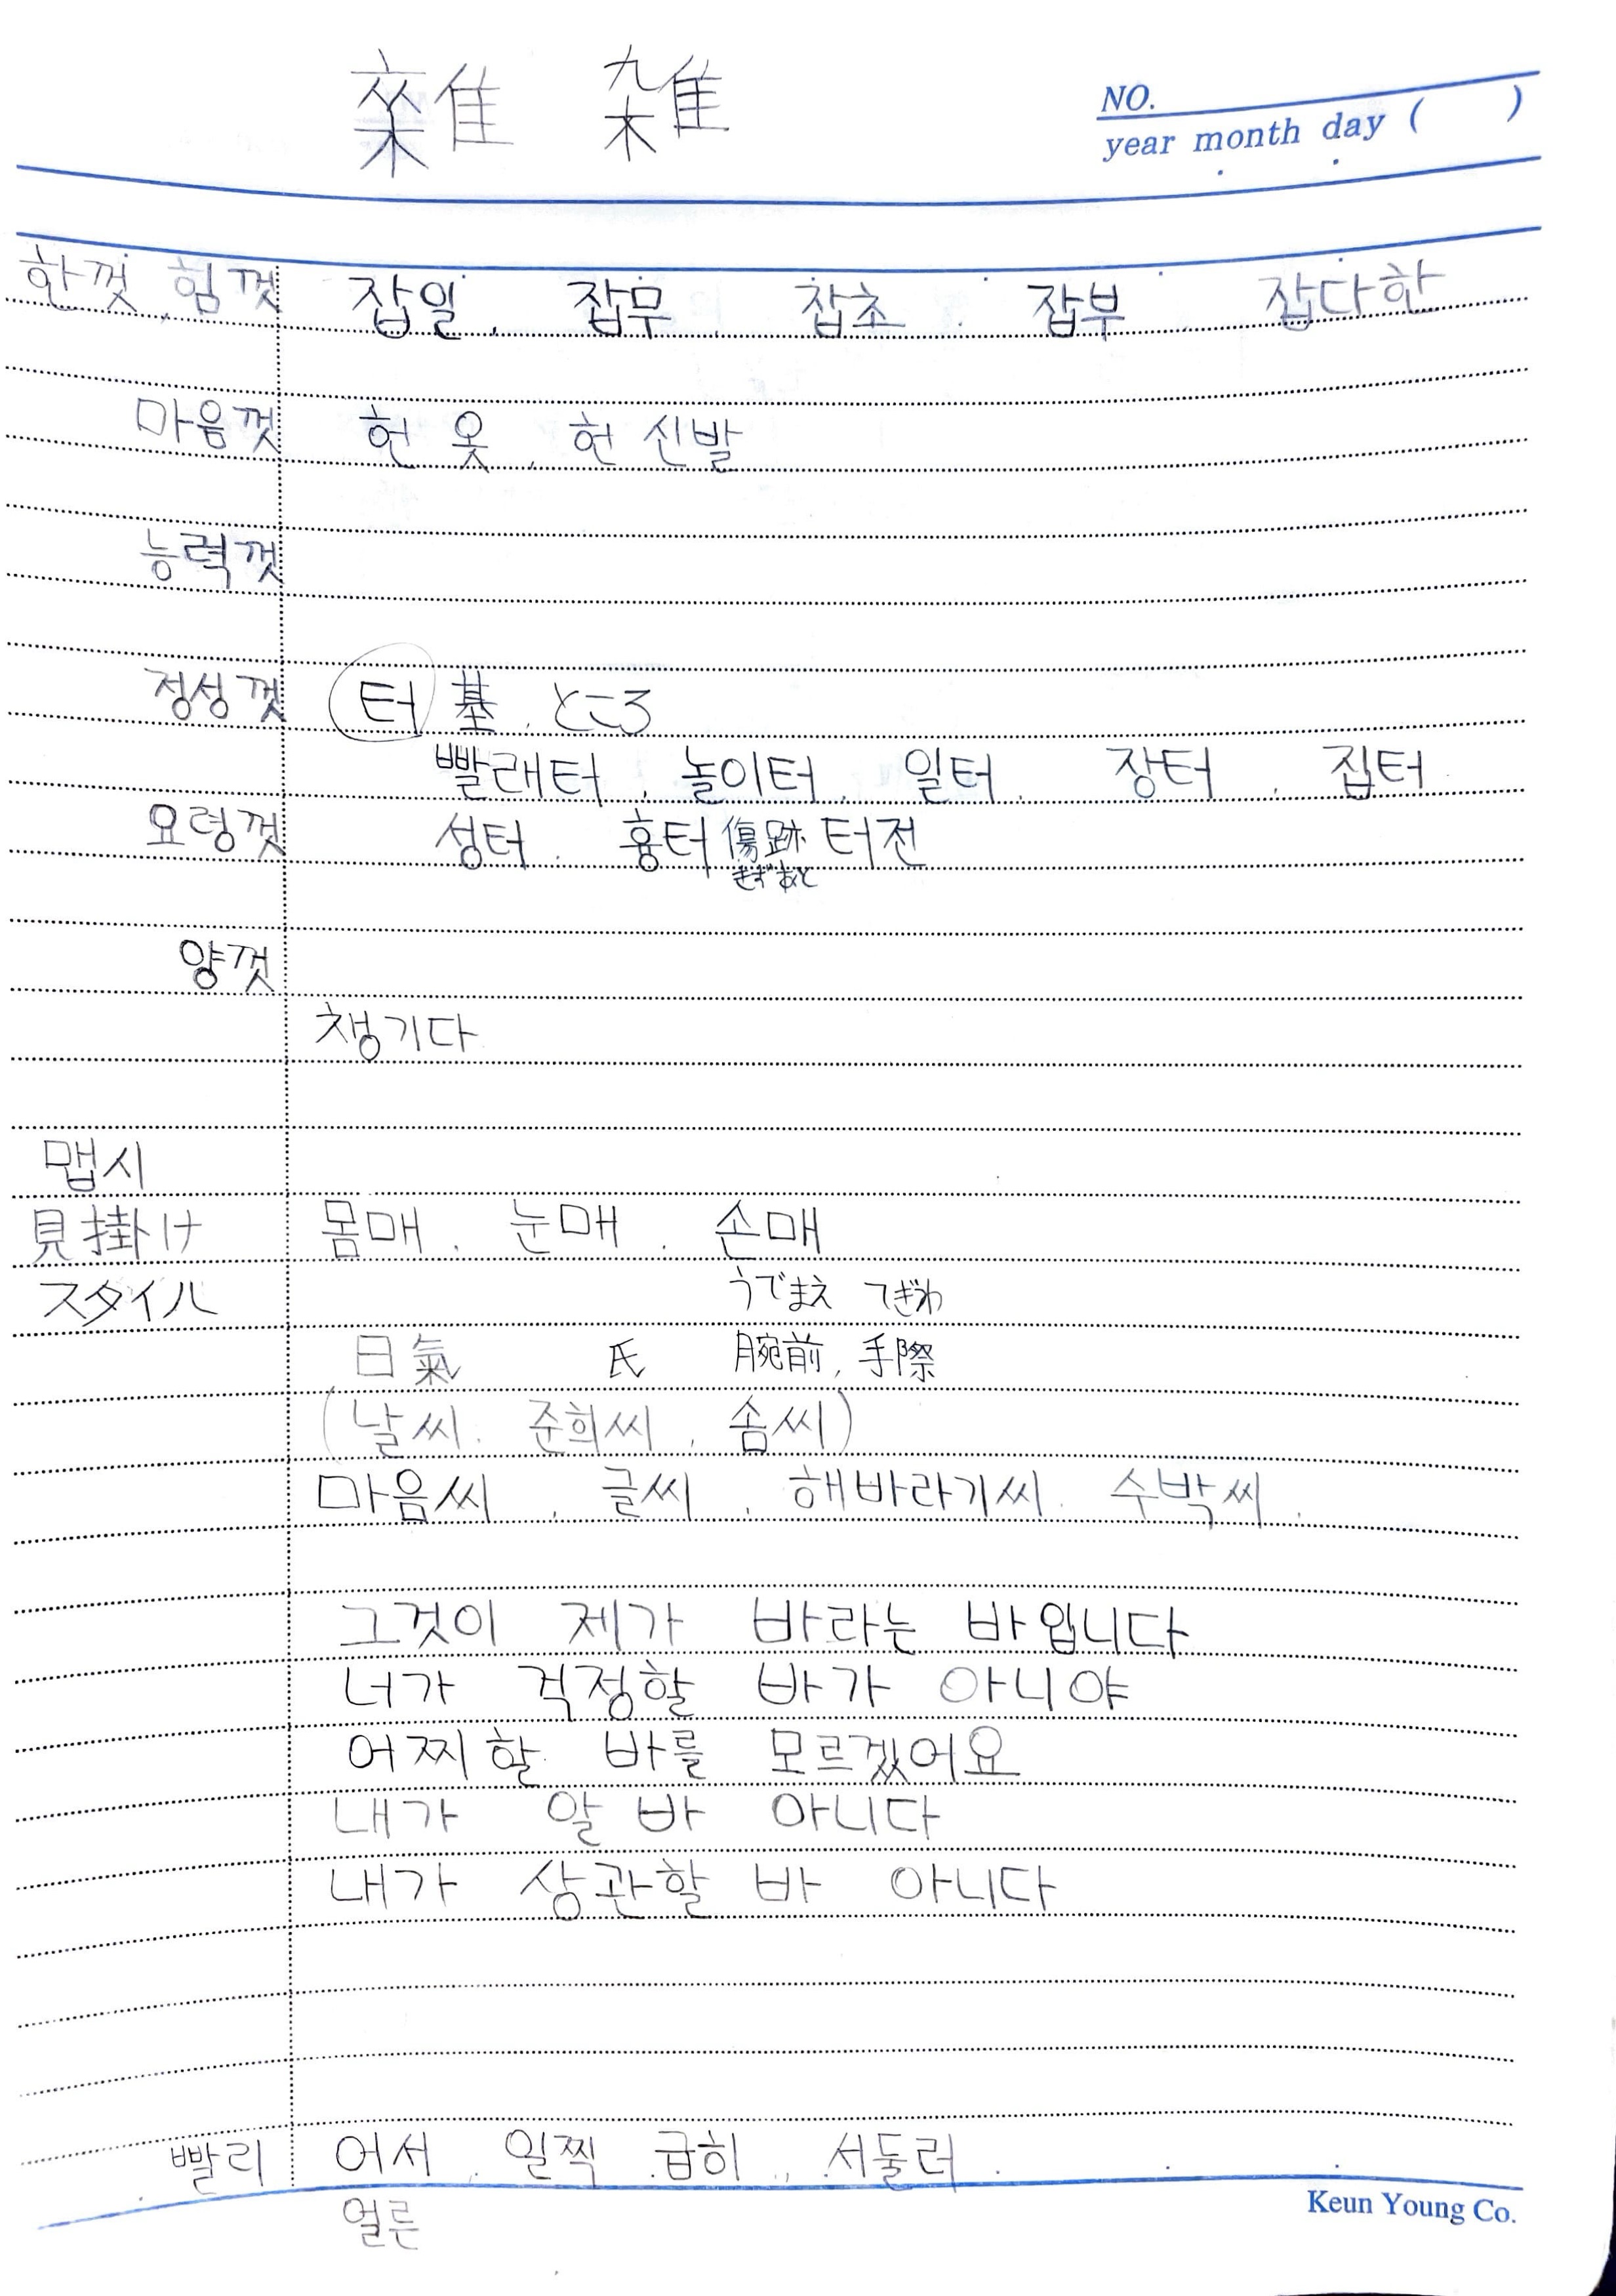 雜 雑
NO.
year month day ( )
한껏, 힘껏 잡일, 잡무, 잡초, 잡부, 잡다한
마음껏 헌 옷, 헌 신발
능력껏
정성껏 터 基, ところ
빨래터, 놀이터, 일터, 장터, 집터
요령껏 성터, 흉터 傷跡 터전
きずあと
양껏
챙기다
맵시
見掛け 몸매, 눈매, 손매
スタイル うでまえ てぎわ
日氣 氏 腕前, 手際
(날씨, 준희씨, 솜씨)
마음씨, 글씨, 해바라기씨, 수박씨,
그것이 제가 바라는 바입니다
너가 걱정할 바가 아니야
어찌할 바를 모르겠어요
내가 알 바 아니다
내가 상관할 바 아니다
빨리 어서, 일찍, 급히, 서둘러
얼른
Keun Young Co.